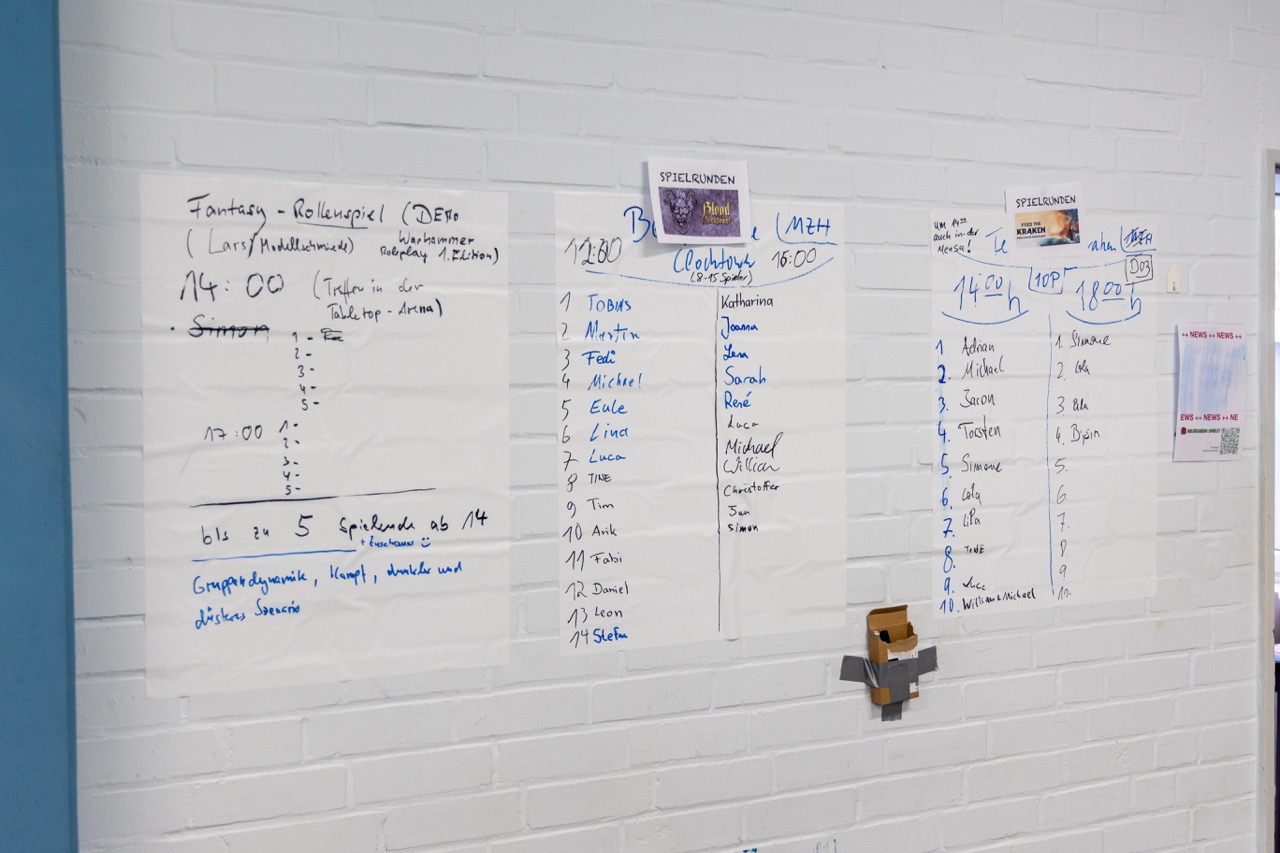 Fantasy - Rollenspiel (DEMO
(Lars/Modellschmiede) Warhammer
Roleplay 1. Edition)
14:00 (Treffen in der
Tabletop - Arena)
Simon
1 -
2 -
3 -
4 -
5 -
17:00 1 -
2 -
3 -
4 -
5 -
bis zu 5 Spielende ab 14
+ Zuschauer
Gruppendynamik, Kampf, dunkler und
düsteres Szenario
SPIELRUNDEN
Blood
MZH
12:00 Clocktower 16:00
(8-15 Spieler)
1 TOBIAS
2 Martin
3 Fedi
4 Michael
5 Eule
6 Lina
7 Luca
8 TINE
9 Tim
10 Arik
11 Fabi
12 Daniel
13 Leon
14 Stefan
Katharina
Joanna
Lena
Sarah
René
Luca
Michael
William
Christoffer
Jan
Simon
SPIELRUNDEN
FEED THE
KRAKEN
um 14:00
auch in der
Mensa!
MZH
D03
14:00 h 10P 18:00 h
1 Adrian
2. Michael
3. Jaron
4. Torsten
5. Simone
6. Lola
7.
8. TINE
9. Luca
10. William + Michael
1. Simone
2. Lola
3
4.
5.
6.
7.
8.
9
11.
++ NEWS ++ NEWS ++
EWS ++ NEWS ++ NE